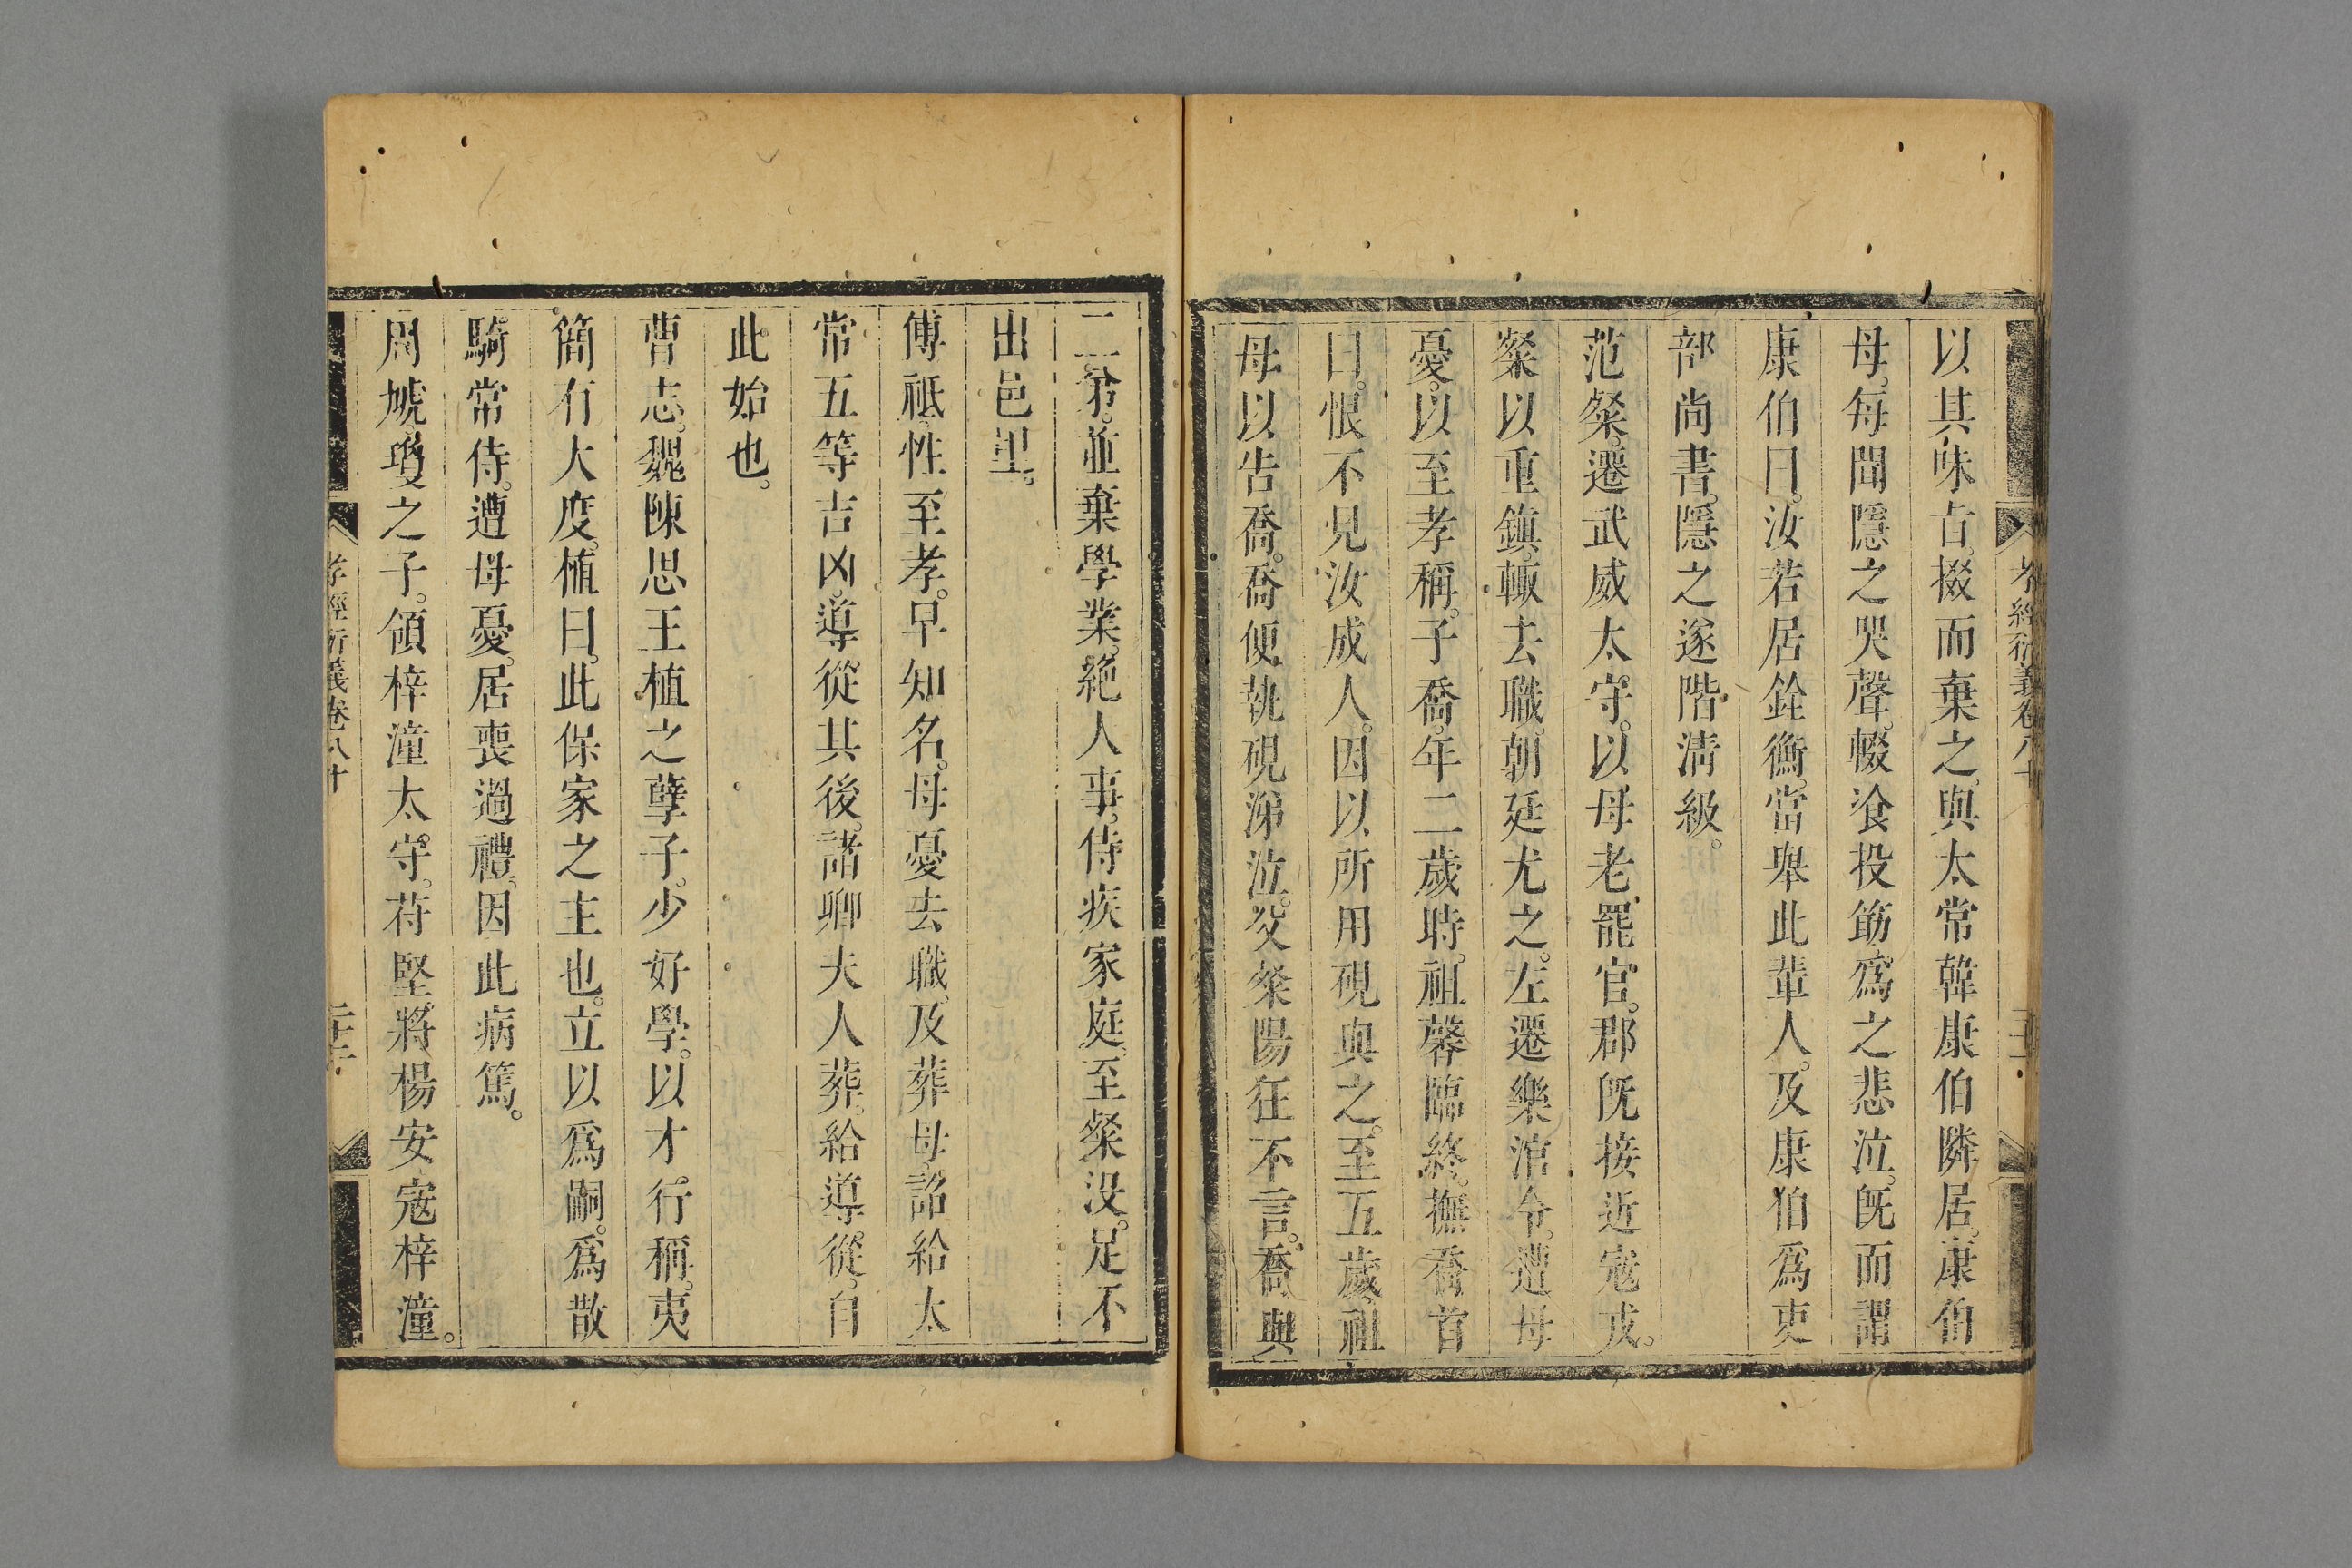 孝經衍義卷八十
以其味旨。掇而棄之。與太常韓康伯隣居。康伯
母。每聞隱之哭聲。輟飡投筯。爲之悲泣。旣而謂
康伯曰。汝若居銓衡。當舉此輩人。及康伯爲吏
部尚書。隱之遂階淸級。
范粲。遷武威太守。以母老罷官。郡旣接近寇戎。
粲以重鎮輙去職。朝廷尤之。左遷樂涫令。遭母
憂。以至孝稱。子喬。年二歲時。祖馨臨終。撫喬首
曰。恨不見汝成人。因以所用硯與之。至五歲。祖
母以告喬。喬便執硯涕泣。父粲陽狂不言。喬與
二弟。並棄學業。絕人事。侍疾家庭。至粲没。足不
出邑里。
傅祗。性至孝。早知名。母憂去職。及葬母。詔給太
常五等吉凶。導從其後。諸卿夫人葬。給導從。自
此始也。
曹志。魏陳思王植之孽子。少好學。以才行稱。夷
簡有大度。植曰。此保家之主也。立以爲嗣。爲散
騎常侍。遭母憂。居喪過禮。因此病篤。
周虓。瓊之子。領梓潼太守。苻堅將楊安寇梓潼。
孝經衍義卷八十